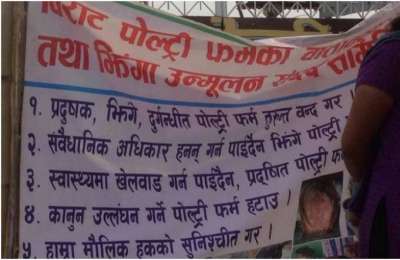 विराट पोल्ट्री फर्मका
तथा झिंगा उन्मूलन
१. प्रदुषक, झिंगे, दुर्गन्धीत पोल्ट्री फर्म तुरुन्त वन्द गर ।
२. संवैधानिक अधिकार हनन् गर्न पाईदैन झिंगे पोल्ट्री
३. स्वास्थ्यमा खेलवाड गर्न पाईदैन, प्रदुषित पोल्ट्री
४. कानुन उल्लंघन गर्ने पोल्ट्री फर्म हटाउ ।
५. हाम्रा मौलिक हकको सुनिश्चीत गर ।